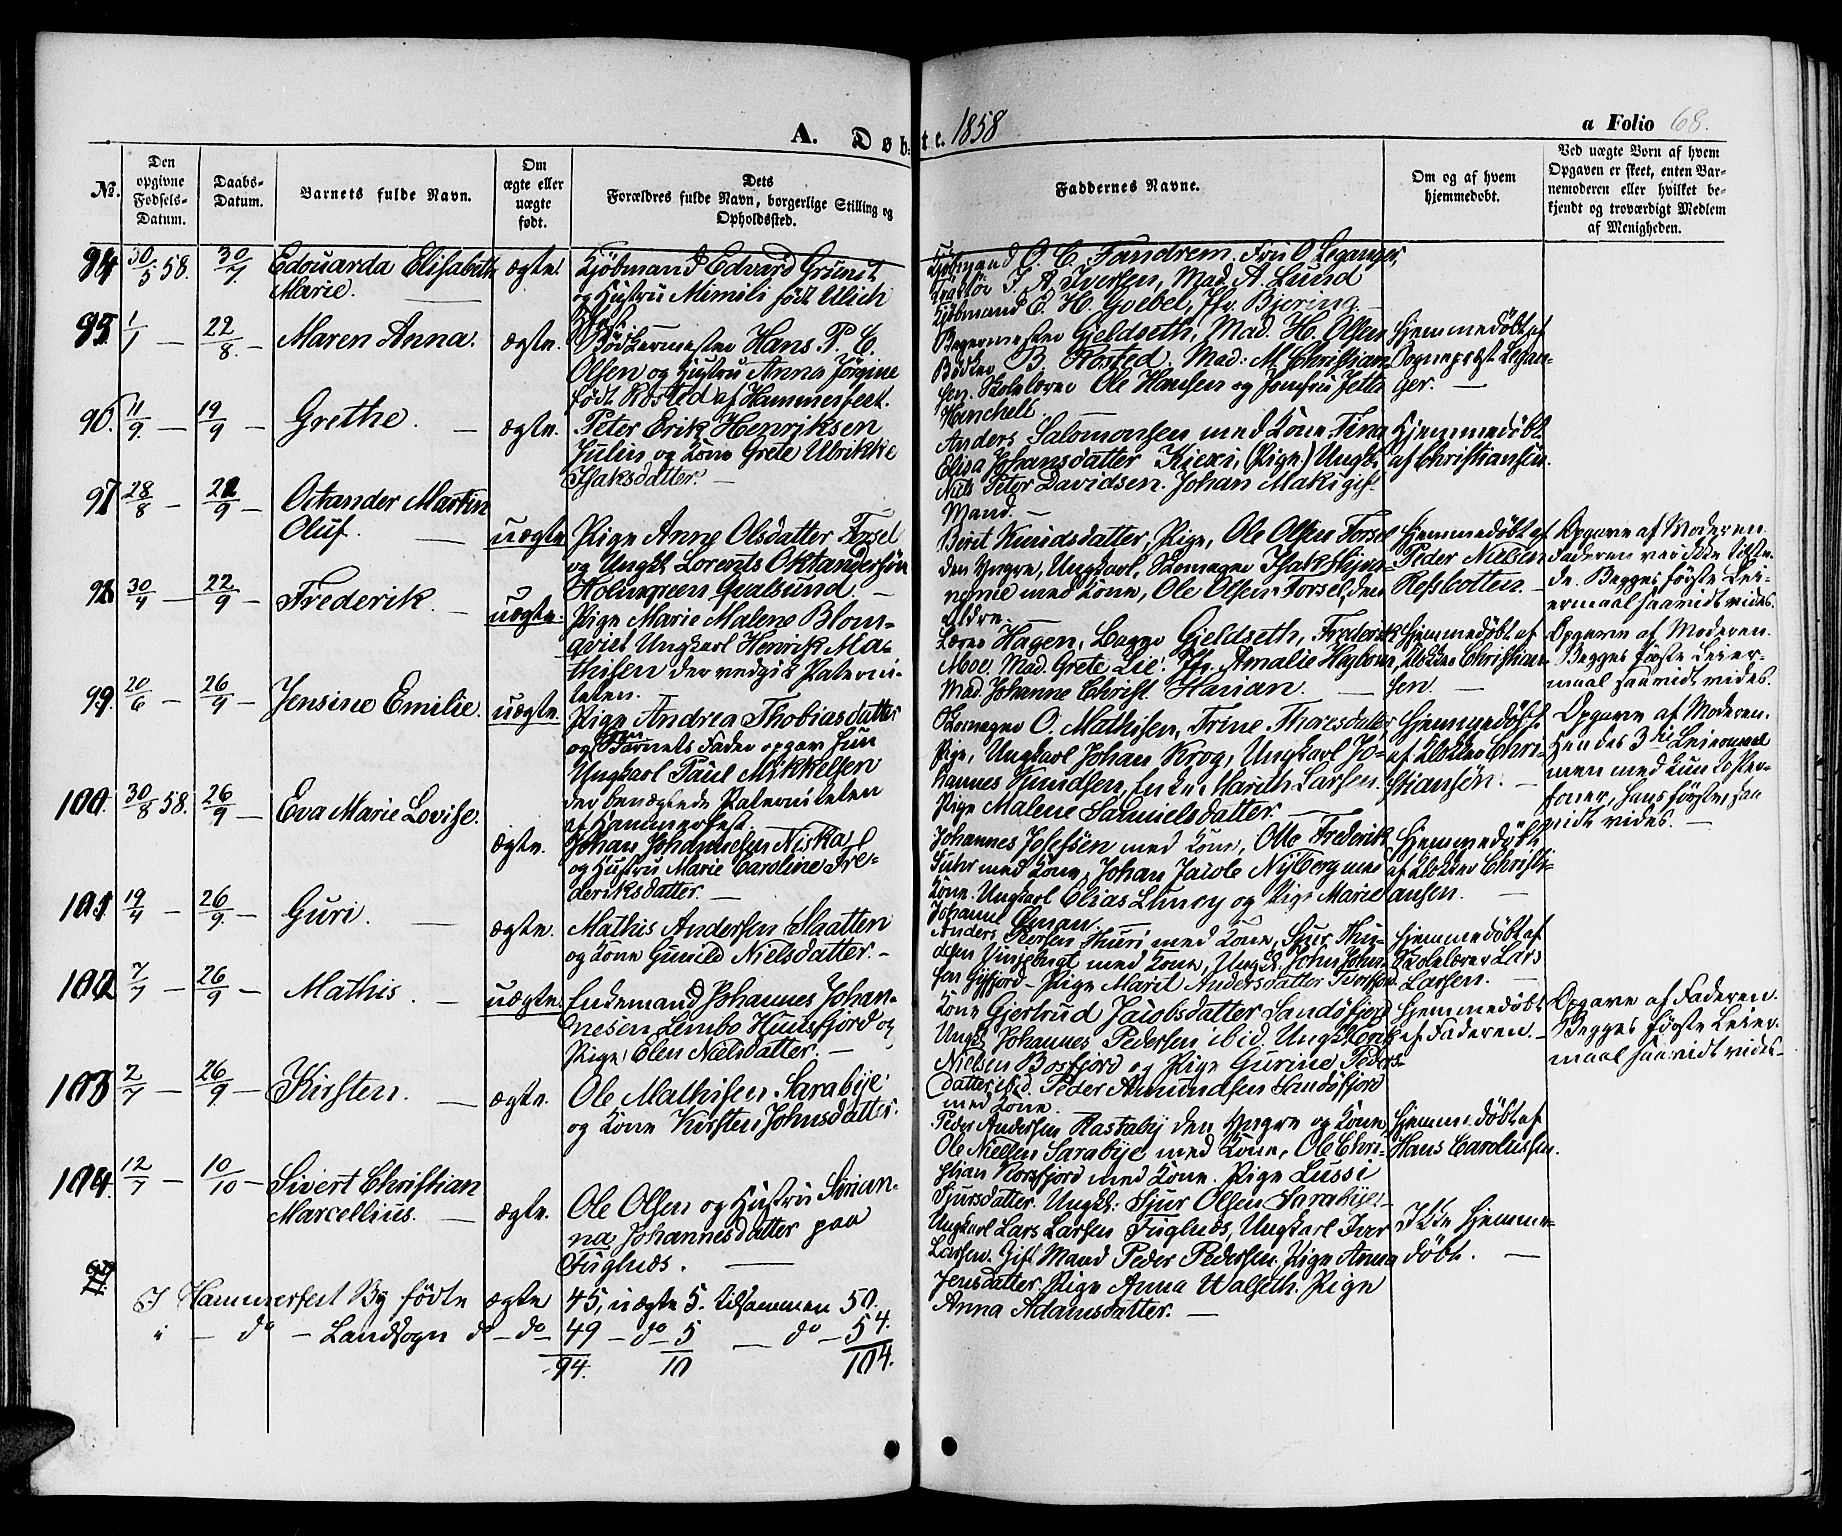 A. Døbte. 1858
a Folio 68.
No.
Den opgivne Fødsels-Datum.
Daabs-Datum.
Barnets fulde Navn.
Om ægte eller uægte født.
Dets Forældres fulde Navn, borgerlige Stilling og Opholdssted.
Faddernes Navne.
Om og af hvem hjemmedøbt.
Ved uægte Born af hvem Opgaven er skeet, enten Barnemoderen eller hvilket bekjendt og troværdigt Medlem af Menigheden.
94 30/5 58. 30/7. Edouarda Elisabeth
Marie.
ægte.
Kjøbmand Edvard Grünit
og Hustru Mimili født Ulich
Kjøbmand O. C. Fandrem, Fru O Leganger,
I. A. Iversen, Mad. A. Lund
Kjøbmand C. H. Goebel, Jfr. Bjering
95. 1/1 — 22/8. — Maren Anna.
ægte.
Bødkermester Hans P. C.
Olsen og Hustru Anna Jørgine
født Rosted af Hammerfest.
Bagermester Gjeldseth, Mad. H. Olsen
Bødker B. Rosted. Mad: M. Christian-
sen. Skolelærer Ole Hansen og Jomfru Jetta
Henchell.
Hjemmedøbt af
Sognepræst Legan-
ger. —
96. 11/9. — 19/9 — Grethe. —
ægte.
Peter Erik Henriksen
Julin og Kone Grete Ulrikke
Isaksdatter. —
Anders Salomonsen med Kone Fina
Elisa Johansdatter Kiexi, (Pige) Ungk.
Niels Peter Davidsen. Johan Maki gift
Mand. —
Hjemmedøbt
af Christiansen.
97. 28/8 — 22/9 — Octander Martin
Oluf. —
uægte
Pige Anne Olsdatter Forsel
og Ungk. Lorents Oktandersøn
Holmgreen Qvalsund. —
Berit Knudsdatter, Pige, Ole Olsen Forsel
den Yngre, Ungkarl, Skomager Isak
med Kone, Ole Olsen Forsel, den
Ældre. —
Hjemmedøbt af
Peder Nielsen
Refsbotten. —
Opgave af Moderen.
Faderen var ikke tilste-
de. Begges første Lei-
ermaal saavidt vides.
98. 30/4 — 22/9 — Frederik. —
uægte.
Pige Marie Malene Blom-
qvist Ungkarl Henrik Ma-
thisen der vedgik Paterni-
teten.
Lærer Hagen, Bager Gjeldseth, Frederik
Moe. Mad. Grete Lie. Jfr. Amalie Hagbom,
Mad. Johanne Christ. Harian. —
Hjemmedøbt af
Klokker Christian-
sen. —
Opgave af Moderen.
Begges første Leier-
maal saavidt vides.
99. 20/6 — 26/9 — Jensine Emilie.
uægte.
Pige Andrea Thobiasdatter
og som Barnets Fader opgav hun
Ungkarl Paul Mikkelsen
der benægtede Paterniteten
af Hammerfest.
Skomager O. Mathisen, Trine Tharesdatter,
Pige, Ungkarl Johan Krog, Ungkarl Jo-
hannes Knudsen, Enke Marith Larsen.
Pige Malene Samuelsdatter. —
Hjemmedøbt
af Klokker Chri-
stiansen. —
Opgave af Moderen.
Hendes 3die Leiermaal
men med kun
hans første, saa
vidt vides. —
100. 30/8 58. 26/9 — Eva Marie Lovise.
ægte.
Johan Johannesen Niska
og Hustru Marie Caroline Fre-
deriksdatter. —
Johannes Josefsen med Kone, Otto Frederik
Suhr med Kone, Johan Jacob Nyberg med
Kone. Ungkarl Elias og Pige Marie
Johanne Öman.
Hjemmedøbt
af Klokker Christi-
ansen. —
101 19/4 — 26/9. — Guri. —
ægte.
Mathis Andersen Slaatten
og Kone Gunild Nielsdatter. —
Anders med Kone, Siur
med Kone, Ungk. John John-
sen Pige Marit Andersdatter
Hjemmedøbt af
Skolelærer Lars
Larsen. —
102 7/7 — 26/9 — Mathis. —
uægte.
Enkemand Johannes Johan-
nesen Lembo Huusfjord og
Pige Elen Nielsdatter. —
Kone Gjertrud Jacobsdatter Sandøfjord
Ungk. Johannes Pedersen ibid. Ungk.
Nielsen Bosfjord og Pige Gurine Peders-
datter ibid. Peder Amundsen Sandøfjord
med Kone.
Hjemmedøbt
af Faderen. —
Opgave af Faderen.
Begges første Leier-
maal saavidt vides —
103 2/7 — 26/9 — Kirsten. —
ægte.
Ole Mathisen Sarabye
og Kone Kirsten Johnsdatter.
Peder Andersen Rastaby den Yngre og Kone,
Ole Nielsen Sarabye med Kone, Ole Chri-
stian Korsfjord med Kone. Pige Lussi
Sjursdatter. Ungk: Sjur Olsen Sarabye.
Hjemmedøbt af
Hans Caroliussen.
104. 12/7 — 10/10 — Sivert Christian
Marcellius. —
ægte.
Ole Olsen og Hustru Sirian-
na Johannesdatter paa
Fuglnæs. —
Ungkarl Lars Larsen Fuglnæs, Ungkarl Iver
Larsen. Gift Mand Peder Pedersen, Pige Anna
Jensdatter, Pige Anna Walseth. Pige
Anna Adamsdatter. —
Ikke hjemme-
døbt. —
I Hammerfest By fødte ægte 45, uægte 5. tilsammen 50.
i — do — Landsogn do — do 49 — do 5 — do — 54.
94. 10 104.